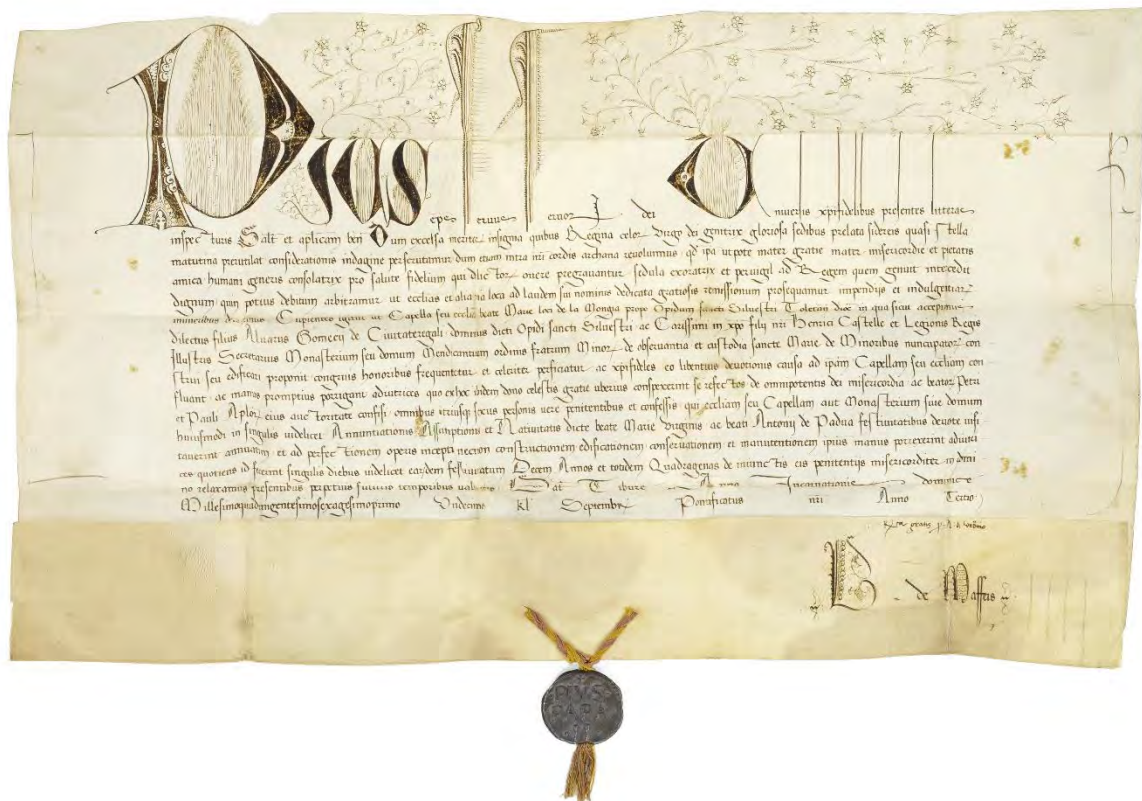 Pius eps servus servor dei Universis xpifidelibus presentes litteras
inspecturis Salt et aplicam ben Dum excelsa meritor insignia quibus Regina celor Virgo dei genitrix gloriosa sedibus prelata sidereis quasi stella
matutina prerutilat considerationis indagine perscrutamur dum etiam intra nri cordis archana revolvimus qd ipa utpote mater gratie mater misericordie et pietatis
amica humani generis consolatrix pro salute fidelium qui dlictor onere pregravantur sedula exoratrix et pervigil ad Regem quem genuit intercedit
dignum quin potius debitum arbitramur ut ecclias et alia pia loca ad laudem sui nominis dedicata gratiosis remissionum prosequamur impendijs et indulgentiar
muneribus Cupientes igitur ut Capella seu ecclia beate Marie loci de la Mongia prope Opidum sancti Silvestri Toletan dioc in qua sicut accepimus
dilectus filius Alvarus Gomecij de Civitateregali dominus dicti Opidi sancti Silvestri ac Carissimi in xpo filij nri Henrici Castelle et Legionis Regis
Illustris Secretarius Monasterium seu domum Mendicantium ordinis fratrum Minor de observantia et custodia sancte Marie de Minoribus nuncupator con
strui seu edificari proponit congruis honoribus frequentetur et celeriter perficiatur ac xpifideles eo libentius devotionis causa ad ipam Capellam seu eccliam con
fluant ac manus promptius porrigant adiutrices quo ex hoc ibidem dono celestis gratie uberius conspexerint se refectos de omnipotentis dei misericordia ac beator Petri
et Pauli Aplor eius auctoritate confisi omnibus utriusqs sexus personis vere penitentibus et confessis qui eccliam seu Capellam aut Monasterium sive domum
huiusmodi in singulis videlicet Annuntiationis Assumptionis et Nativitatis dicte beate Marie Virginis ac beati Antonij de Padua festivitatibus devote visi
taverint annuatim et ad perfectionem operis incepti necnon constructionem edificationem conservationem et manutentionem ipius manus porrexerint adiutri
ces quotiens id fecerint singulis diebus videlicet eardem festivitatum Decem Annos et totidem Quadragenas de iniunctis eis penitentijs misericorditer in dmi
no relaxamus presentibus perpetuis futuris temporibus valituris Dat Tibure Anno Incarnationis dominice
Millesimoquadringentesimosexagesimoprimo Undecimo kl Septembr Pontificatus nri Anno Tertio
de Maffeis
PIVS
PAPA
II